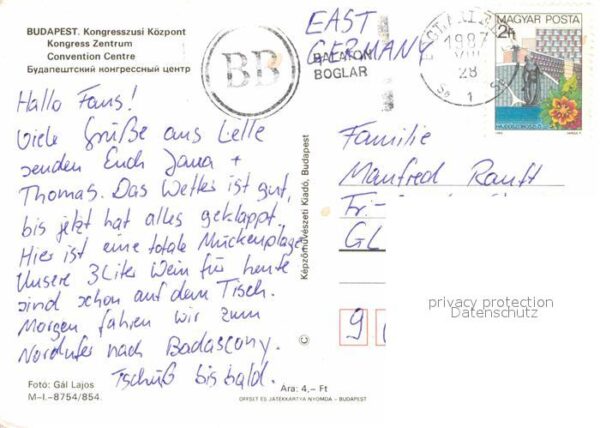 BUDAPEST. Kongresszusi Központ
Kongress Zentrum
Convention Centre
Будапештский конгрессный центр
Hallo Fans!
Viele Grüße aus Lelle
senden Euch Jana +
Thomas. Das Wetter ist gut,
bis jetzt hat alles geklappt.
Hier ist eine totale Mückenplage.
Unsere 3 Liter Wein für heute
sind schon auf dem Tisch.
Morgen fahren wir zum
Nordufer nach Badascony.
Tschüß bis bald.
Fotó: Gál Lajos
M-I.-8754/854.
Ára: 4,- Ft
OFFSET ÉS JÁTÉKKÁRTYA NYOMDA - BUDAPEST
Képzőművészeti Kiadó, Budapest
©
EAST
GERMANY
BB
BALATON
BOGLÁR
1987
VIII
28
1
MAGYAR POSTA
2ft
HAJDÚSZOBOSZLÓ
Familie
Manfred Ranft
Fr.-
GL
9
privacy protection
Datenschutz